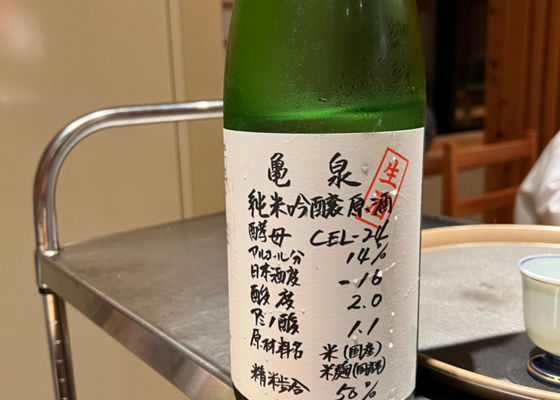 亀泉
生酒
純米吟醸原酒
酵母 CEL-24
アルコール分 14%
日本酒度 -16
酸度 2.0
アミノ酸 1.1
原材料名 米(国産)
米麹(国産米)
精米歩合 50%